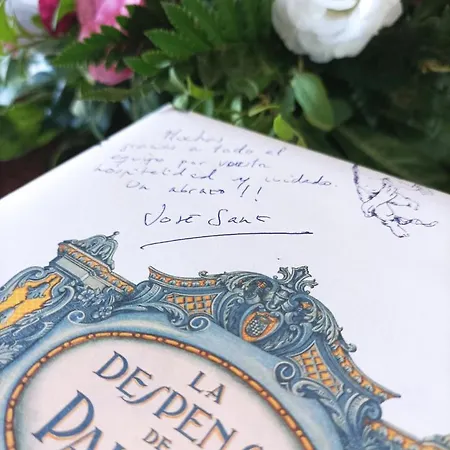 Muchas
gracias a todo el
equipo por vuestra
hospitalidad y cuidado.
Un abrazo!!
JOSE SANE
LA
DESPENS
DE
PA